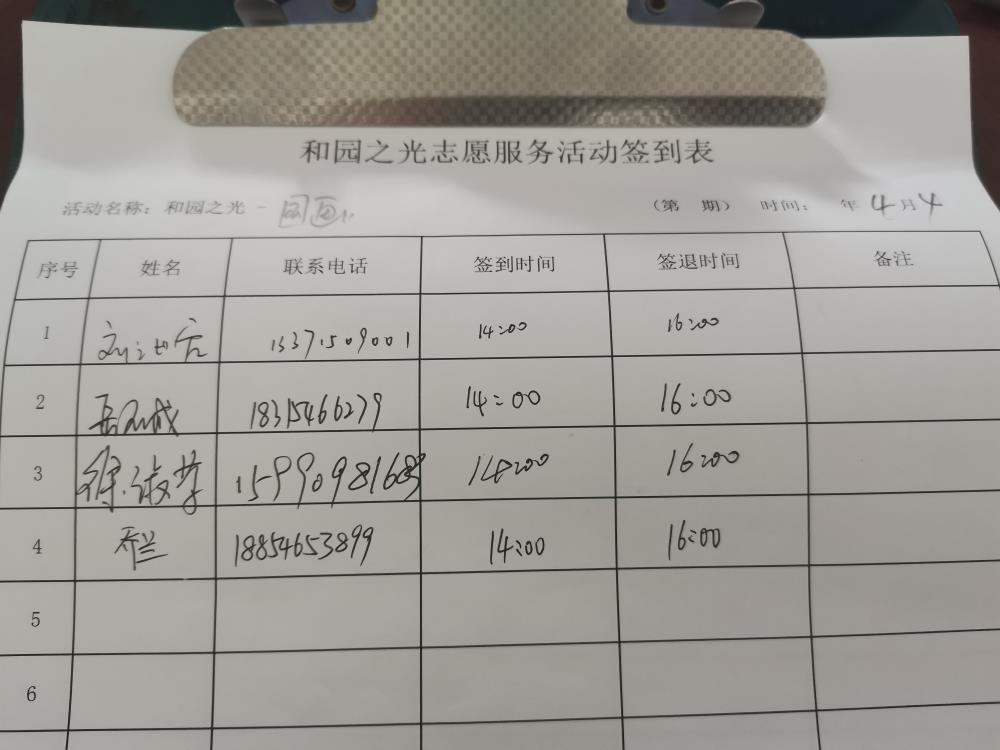 和园之光志愿服务活动签到表
活动名称: 和园之光 - 国画 (第 期) 时间: 年 4月4
序号 姓名 联系电话 签到时间 签退时间 备注
1 14:00 16:00
2 18315466279 14:00 16:00
3 徐淑芳 14:00 16:00
4 乔兰 18854653899 14:00 16:00
5
6